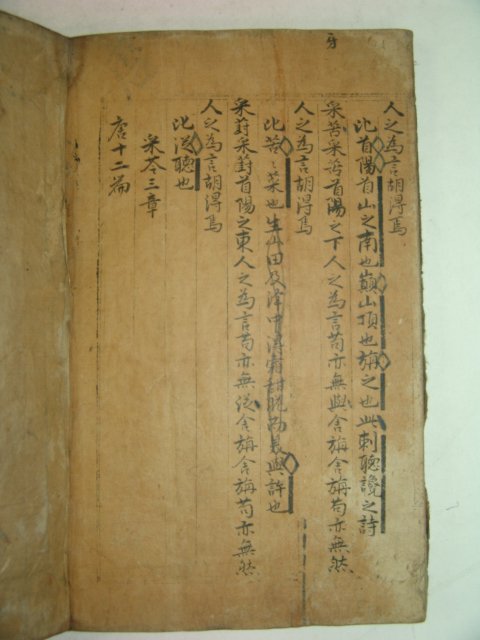 人之為言胡得焉
比首陽首山之南也巓山頂也旃之也此刺聽讒之詩
采苦采苦首陽之下人之為言苟亦無與舍旃舍旃苟亦無然
人之為言胡得焉
比苦〻菜也生山田及澤中得霜甜脆而美與許也
采葑采葑首陽之東人之為言苟亦無從舍旃舍旃苟亦無然
人之為言胡得焉
比從聽也
采苓三章
唐十二篇